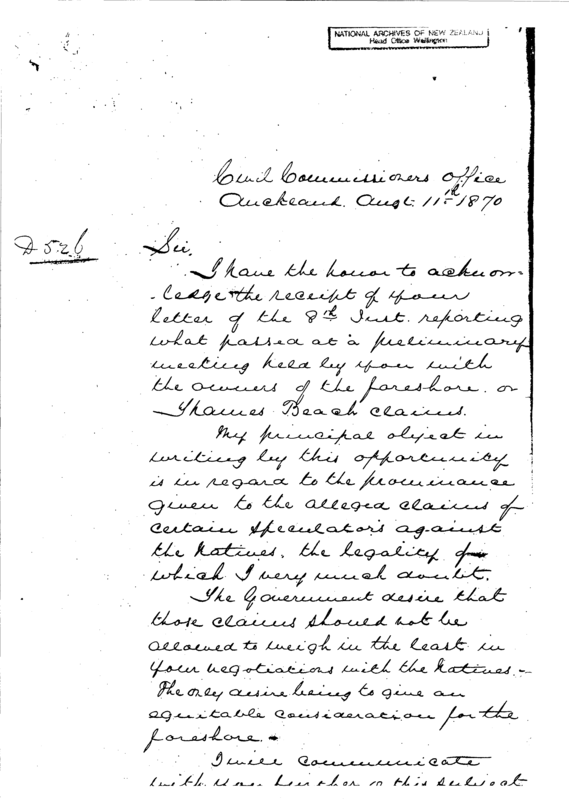 NATIONAL ARCHIVES OF NEW ZEALAND
Head Office Wellington
Civil Commissioners Office
Auckland. Augt. 11th 1870
D 526
Sir,
I have the honor to acknow-
-ledge the receipt of your
letter of the 8th Inst. reporting
what passed at a preliminary
meeting held by you with
the owners of the foreshore. or
Thames Beach claims.
My principal object in
writing by this opportunity
is in regard to the prominance
given to the alleged claims of
certain speculators against
the Natives, the legality of
which I very much doubt.
The Government desire that
those claims should not be
allowed to weigh in the least in
your negotiations with the Natives.-
The only desire being to give an
equitable consideration for the
foreshore.-
I will communicate
with you further on this subject